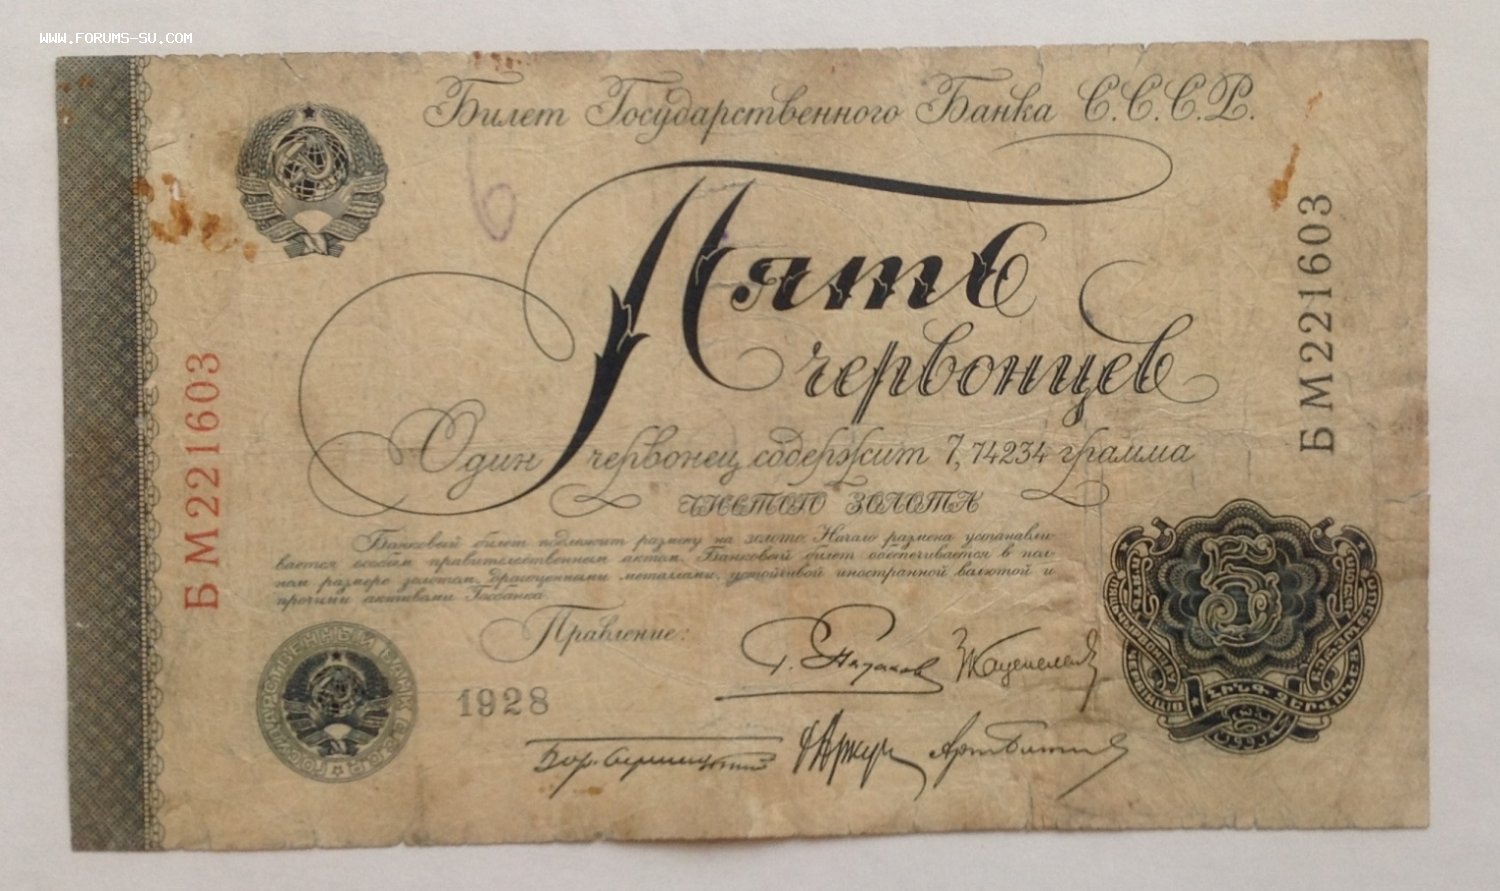 WWW.FORUMS-SU.COM
Билет Государственного Банка С.С.С.Р.
Пять
червонцев
Один червонец содержит 7,74234 грамма
ЧИСТОГО ЗОЛОТА
Банковый билет подлежит размену на золото. Начало размена устанавли-
вается особым правительственным актом. Банковый билет обеспечивается в пол-
ном размере золотом, драгоценными металлами, устойчивой иностранной валютой и
прочими активами Госбанка.
Правление:
1928
БМ221603
БМ221603
ГОСУДАРСТВЕННЫЙ БАНК СССР
5
ՀԻՆԳ ՉԵՐՎՈՆԵՑ